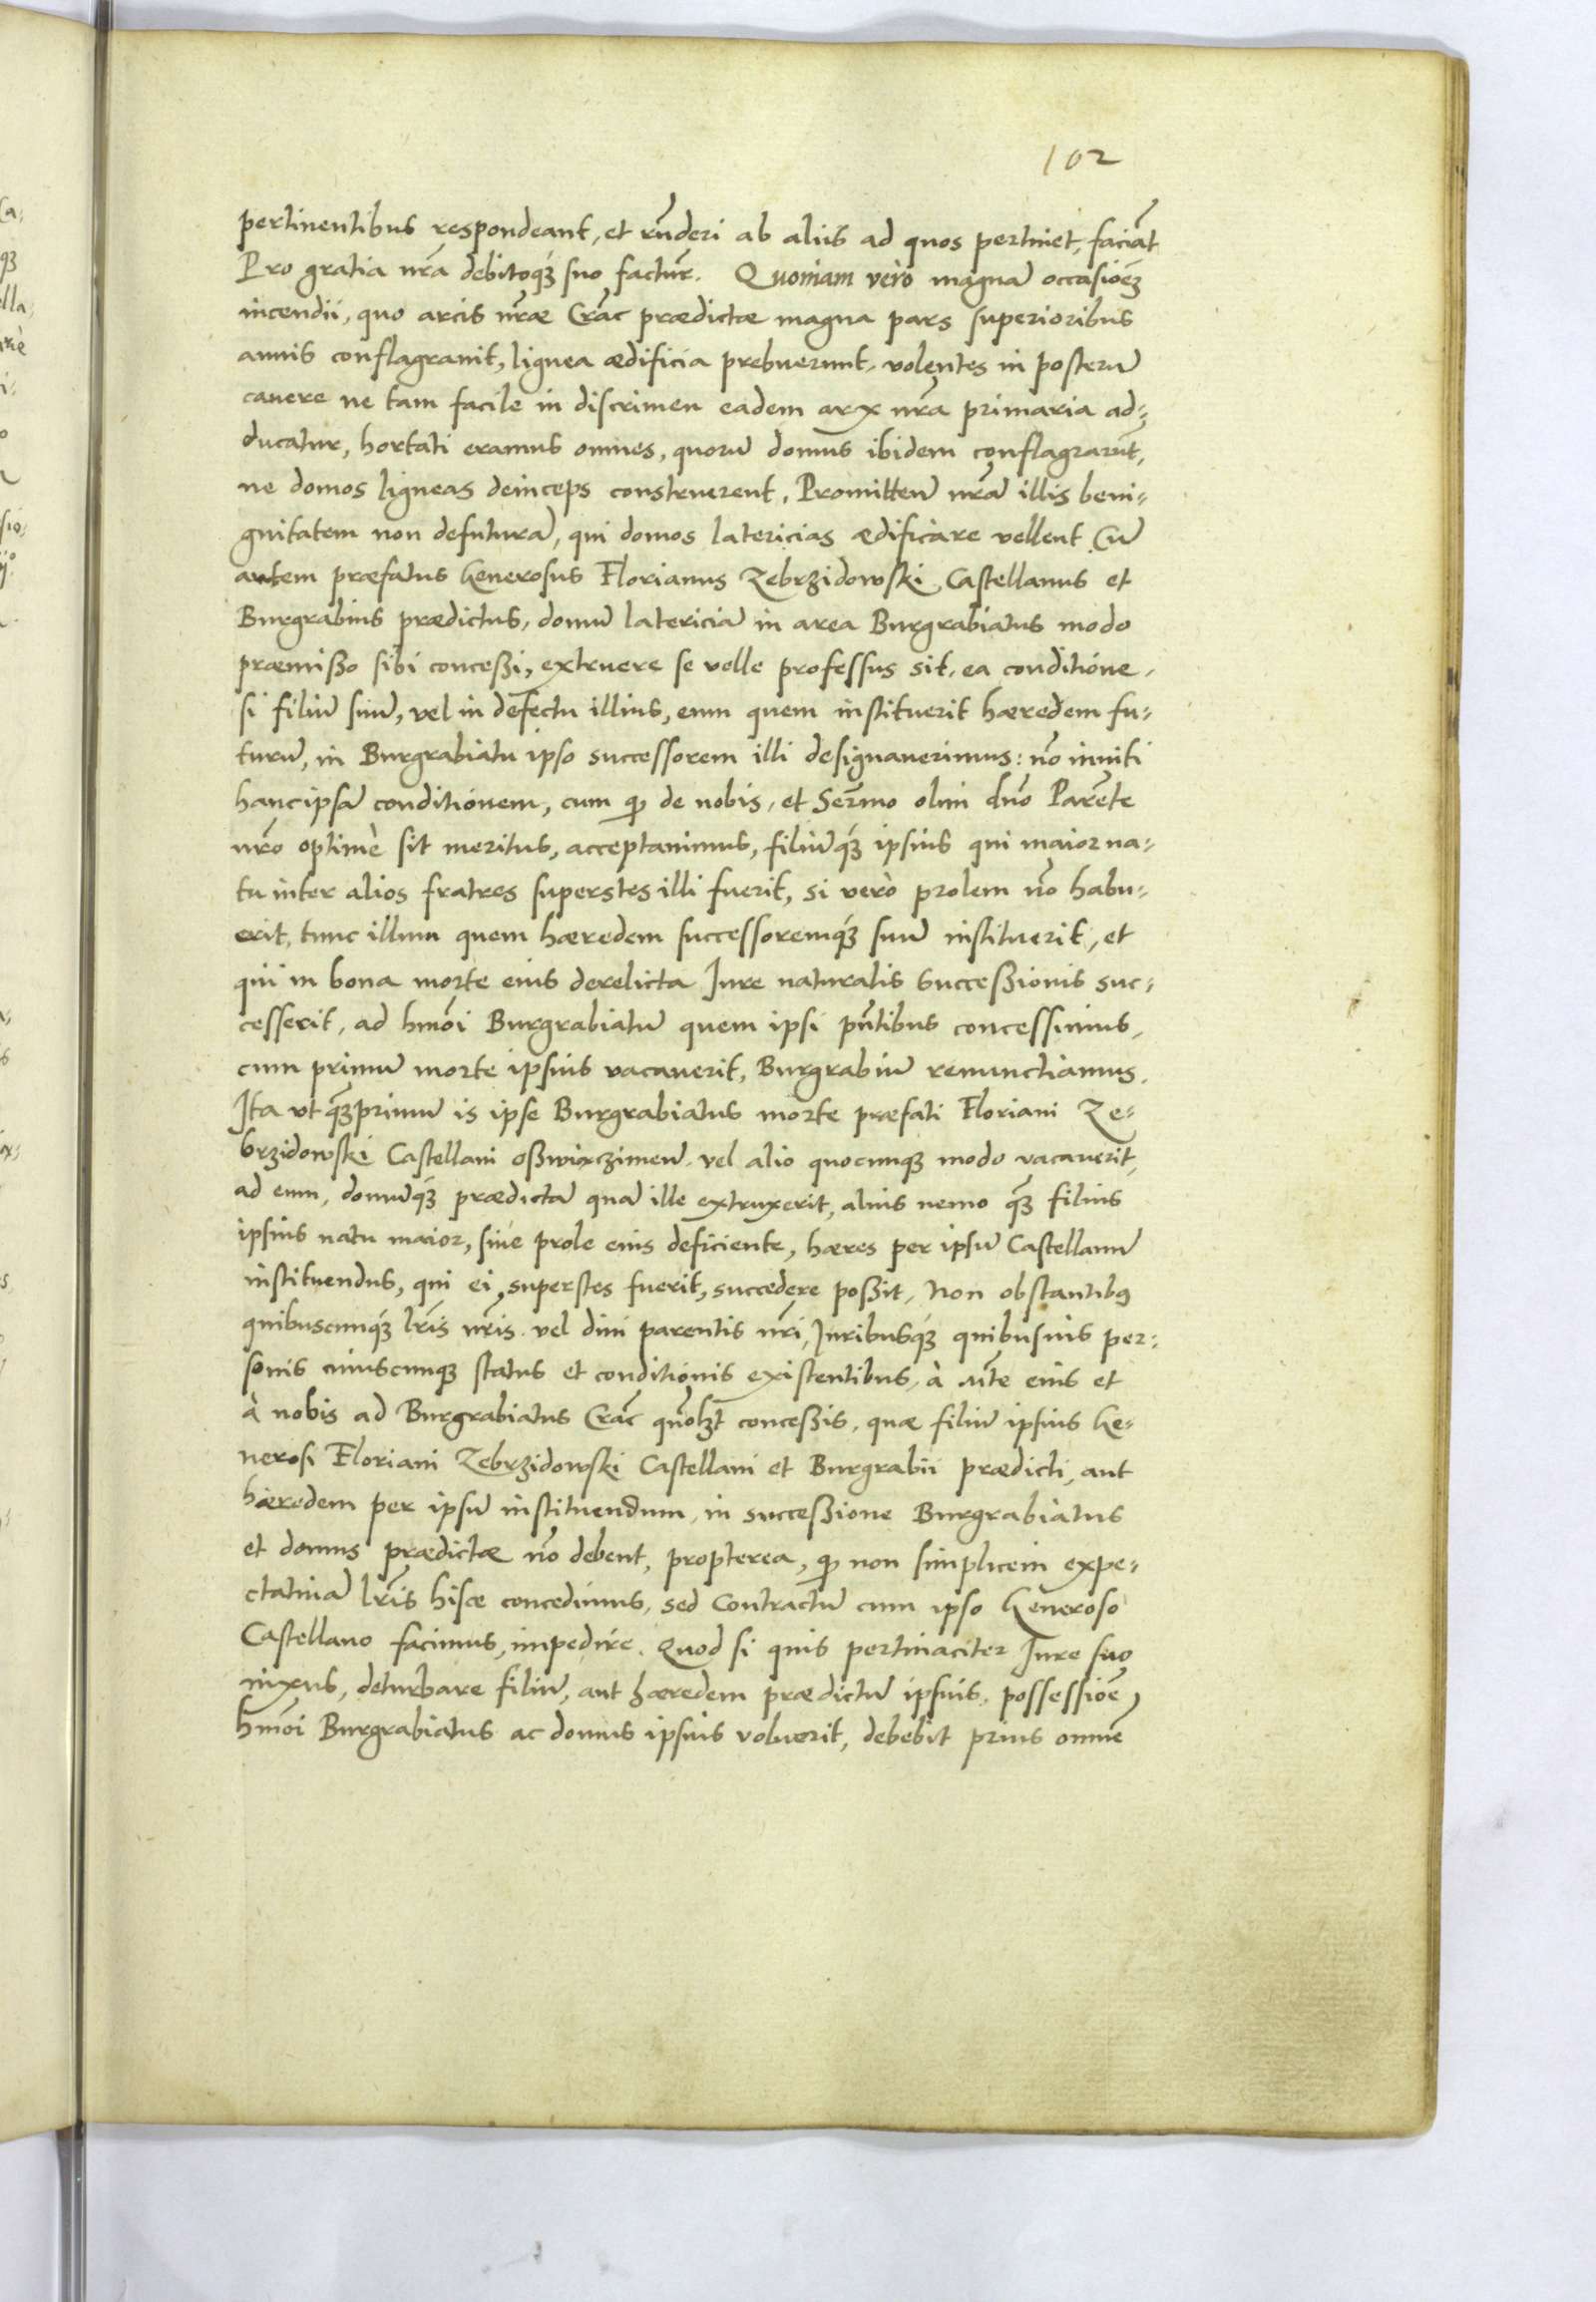 102
pertinentibus respondeant, et rn̄deri ab aliis ad quos pertinet, faciāt
Pro gratia nr̄a debitoq́ꝫ suo factur̄. Quoniam verò magnā occasiōēꝫ
incendii, quo arcis nr̄ae Crac̄ praedictae magna pars superioribus
annis conflagrauit, lignea aedificia prebuerunt, volentes in posterū
cauere ne tam facile in discrimen eadem arx nr̄a primaria ad-
ducatur, hortati eramus omnes, quorū domus ibidem conflagrarūt,
ne domos ligneas deinceps construerent. Promitten̄ nr̄ā illis beni-
gnitatem non defuturā, qui domos latericias aedificare vellent Cū
autem praefatus Generosus Florianus Zebrzidowski Castellanus et
Burgrabius praedictus, domū latericiā in area Burgrabiatus modo
praemißo sibi conceßi, extruere se velle professus sit, ea conditióne,
si filiū suū, vel in defectu illius, eum quem instituerit haeredem fu-
turū, in Burgrabiatu ipso successorem illi designauerimus: nō inuiti
hanc ipsā conditiónem, cum ꝙ de nobis, et Serm̄o olim dn̄o Parēte
nr̄o optimè sit meritus, acceptauimus, filiūq́ꝫ ipsius qui maior na-
tu inter alios fratres superstes illi fuerit, si verò prolem nō habu-
erit, tunc illum quem haeredem successoremq́ꝫ suū instituerit, et
qui in bona morte eius derelicta Iure naturalis Succeßionis suc-
cesserit, ad hm̄oi Burgrabiatū quem ipsi pn̄tibus concessimus,
cum primū morte ipsius vacauerit, Burgrabiū renunctiamus.
Ita vt q̄ꝫprimū is ipse Burgrabiatus morte praefati Floriani Ze-
brzidowski Castellani oßwiaczimen̄, vel alio quocunqꝫ modo vacauerit,
ad eum, domūq́ꝫ praedictā quā ille extruxerit, alius nemo q̄ꝫ filius
ipsius natu maior, siue prole eius deficiente, haeres per ipsū Castellanū
instituendus, qui ei superstes fuerit, succedere poßit, Non obstantibꝰ
quibuscunq́ꝫ lr̄is nr̄is, vel diui parentis nr̄i, Iuribusq́ꝫ quibusuis per-
sonis cuiuscunqꝫ status et conditiónis existentibus, à M̄te eius et
à nobis ad Burgrabiatus Crac̄ quōlꝫt conceßis, quae filiū ipsius Ge-
nerosi Floriani Zebrzidowski Castellani et Burgrabii praedicti, aut
haeredem per ipsū instituendum, in succeßione Burgrabiatus
et domus praedictae nō debent, propterea, ꝙ non simplicem expe-
ctatiuā lr̄is hisce concedimus, sed Contractū cum ipso Generoso
Castellano facimus, impedire. Quod si quis pertinaciter Iure suo
nixus, deturbare filiū, aut haeredem praedictū ipsius, possessiōe
hm̄oi Burgrabiatus ac domus ipsius voluerit, debebit prius omnē